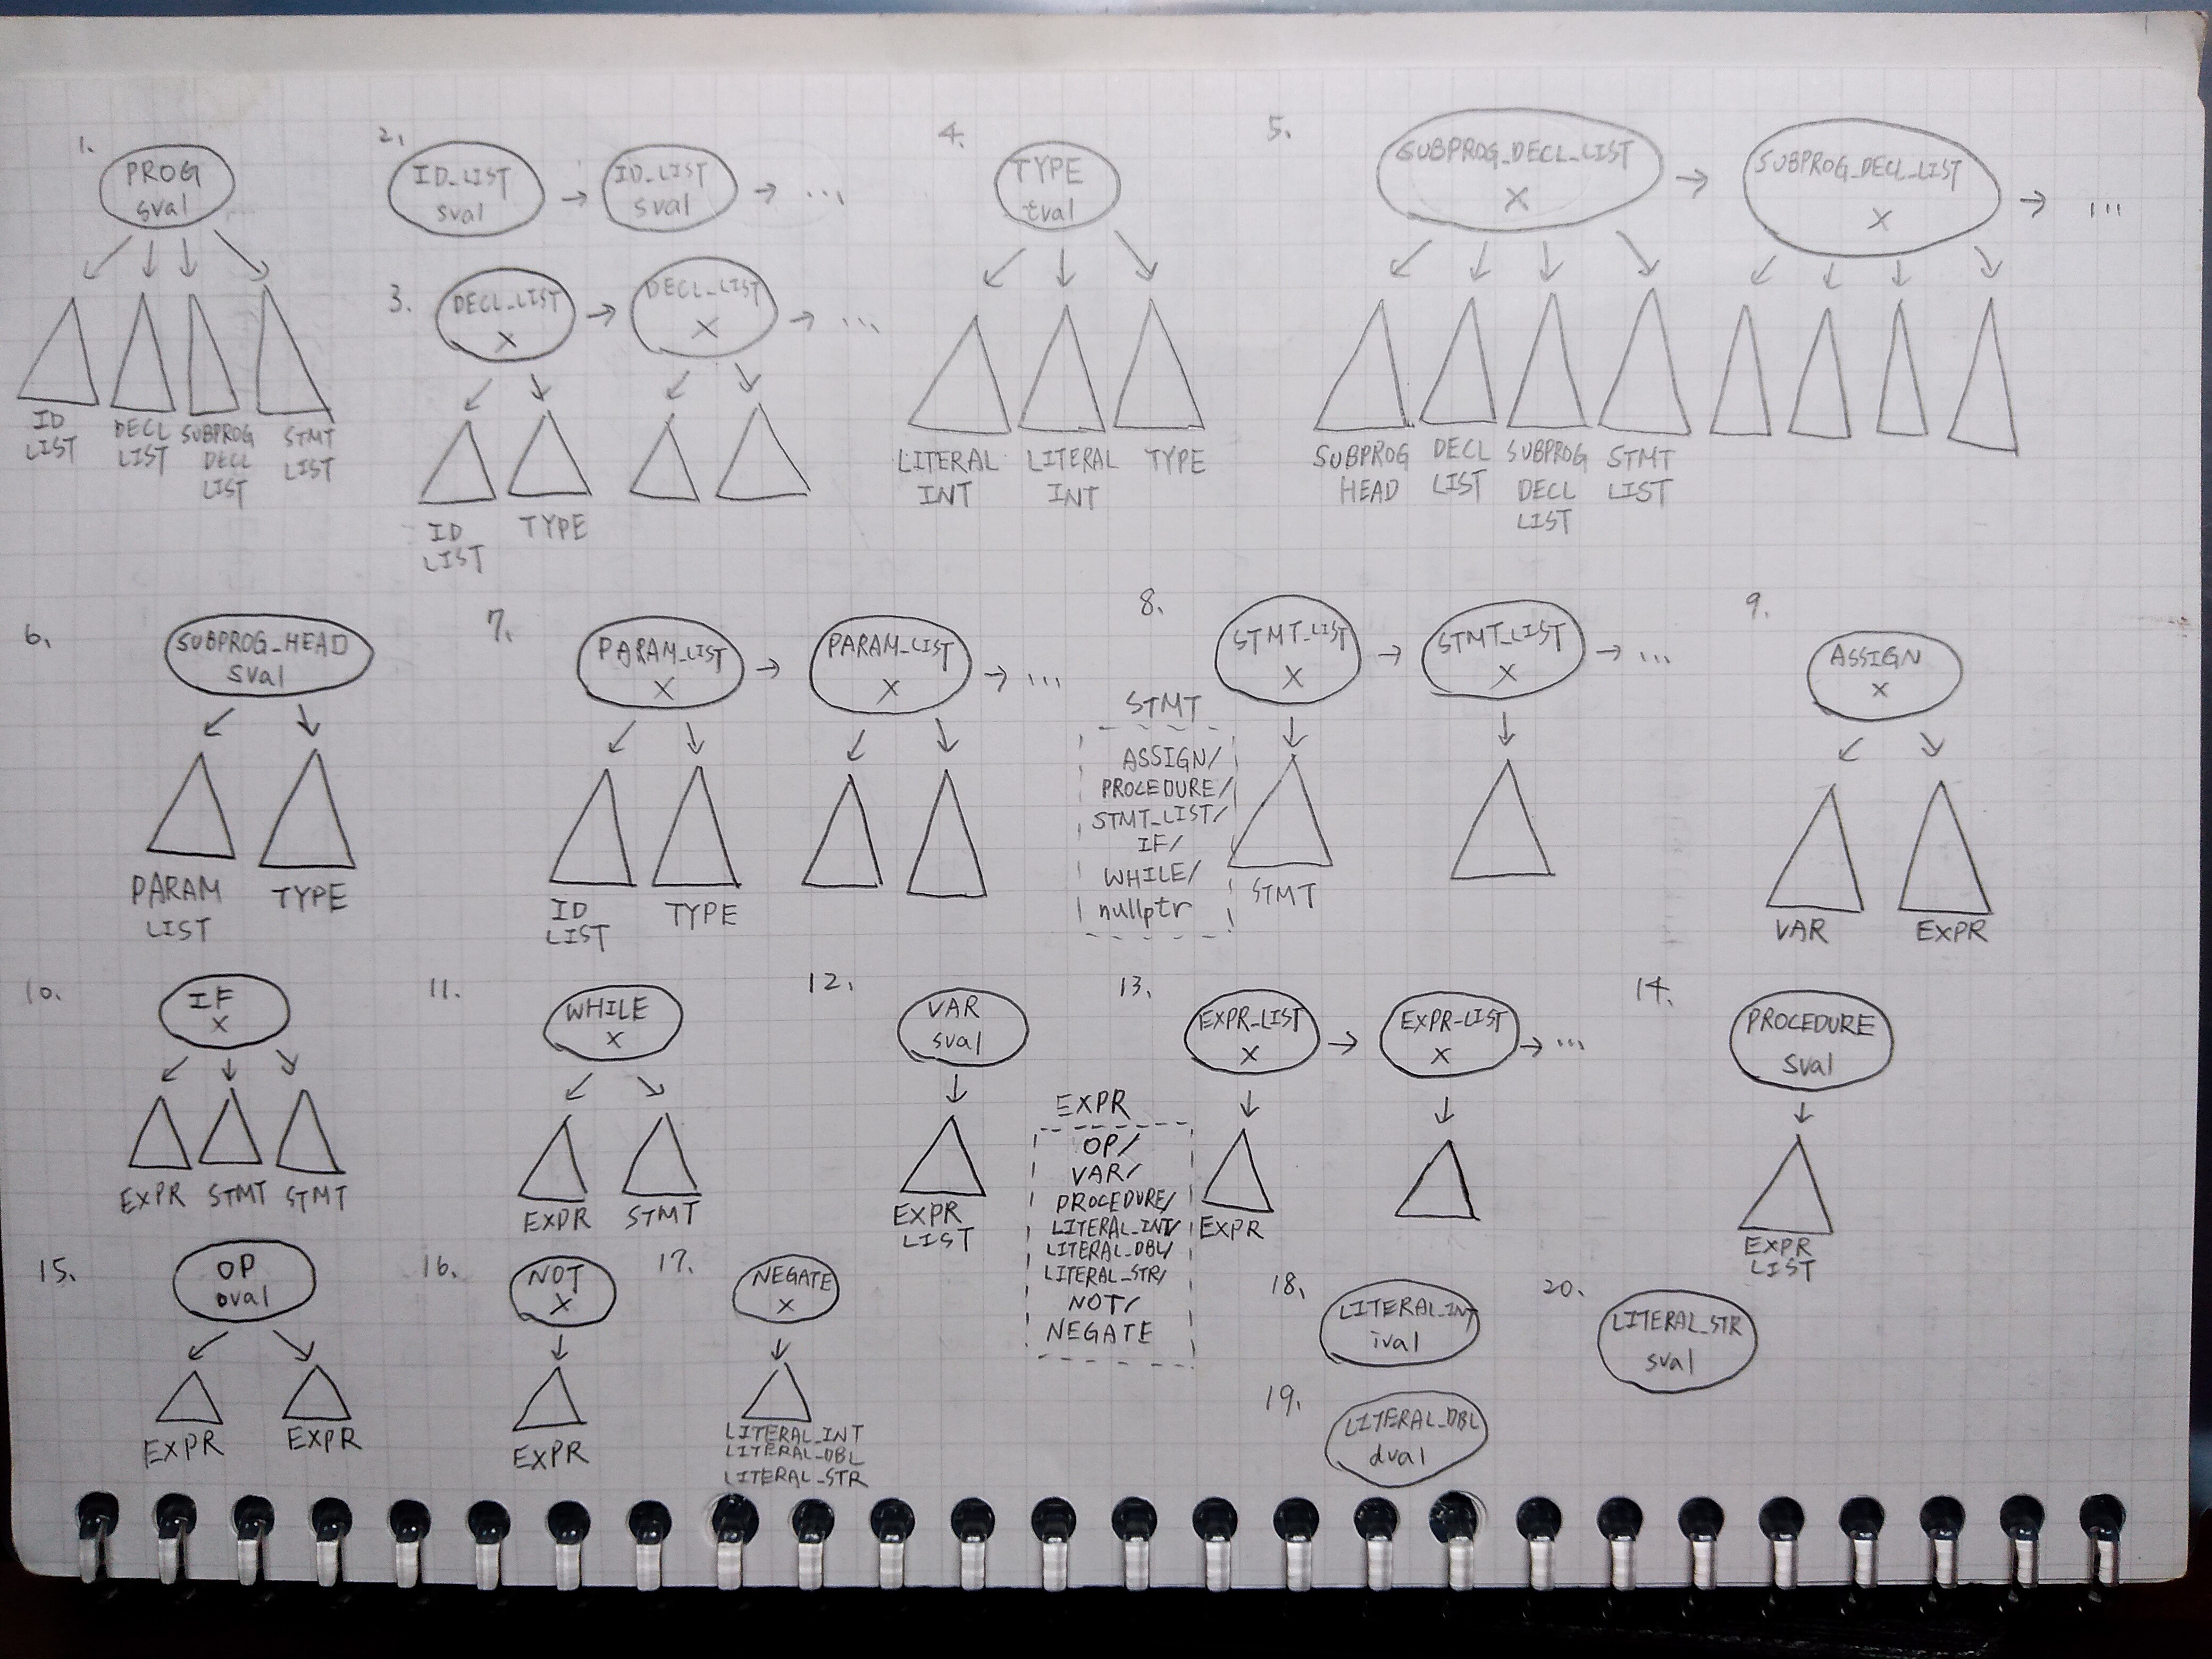 1.
PROG
sval
ID
LIST
DECL
LIST
SUBPROG
DECL
LIST
STMT
LIST
2.
ID_LIST
sval
ID_LIST
sval
...
3.
DECL_LIST
X
DECL_LIST
X
...
ID
LIST
TYPE
4.
TYPE
tval
LITERAL
INT
LITERAL
INT
TYPE
5.
SUBPROG_DECL_LIST
X
SUBPROG_DECL_LIST
X
...
SUBPROG
HEAD
DECL
LIST
SUBPROG
DECL
LIST
STMT
LIST
6.
SUBPROG_HEAD
sval
PARAM
LIST
TYPE
7.
PARAM_LIST
X
PARAM_LIST
X
...
ID
LIST
TYPE
8.
STMT_LIST
X
STMT_LIST
X
...
STMT
ASSIGN/
PROCEDURE/
STMT_LIST/
IF/
WHILE/
nullptr
STMT
9.
ASSIGN
X
VAR
EXPR
10.
IF
X
EXPR
STMT
STMT
11.
WHILE
X
EXPR
STMT
12.
VAR
sval
EXPR
LIST
13.
EXPR_LIST
X
EXPR_LIST
X
...
EXPR
OP/
VAR/
PROCEDURE/
LITERAL_INT/
LITERAL_DBL/
LITERAL_STR/
NOT/
NEGATE
EXPR
14.
PROCEDURE
sval
EXPR
LIST
15.
OP
oval
EXPR
EXPR
16.
NOT
X
EXPR
17.
NEGATE
X
LITERAL_INT
LITERAL_DBL
LITERAL_STR
18.
LITERAL_INT
ival
19.
LITERAL_DBL
dval
20.
LITERAL_STR
sval